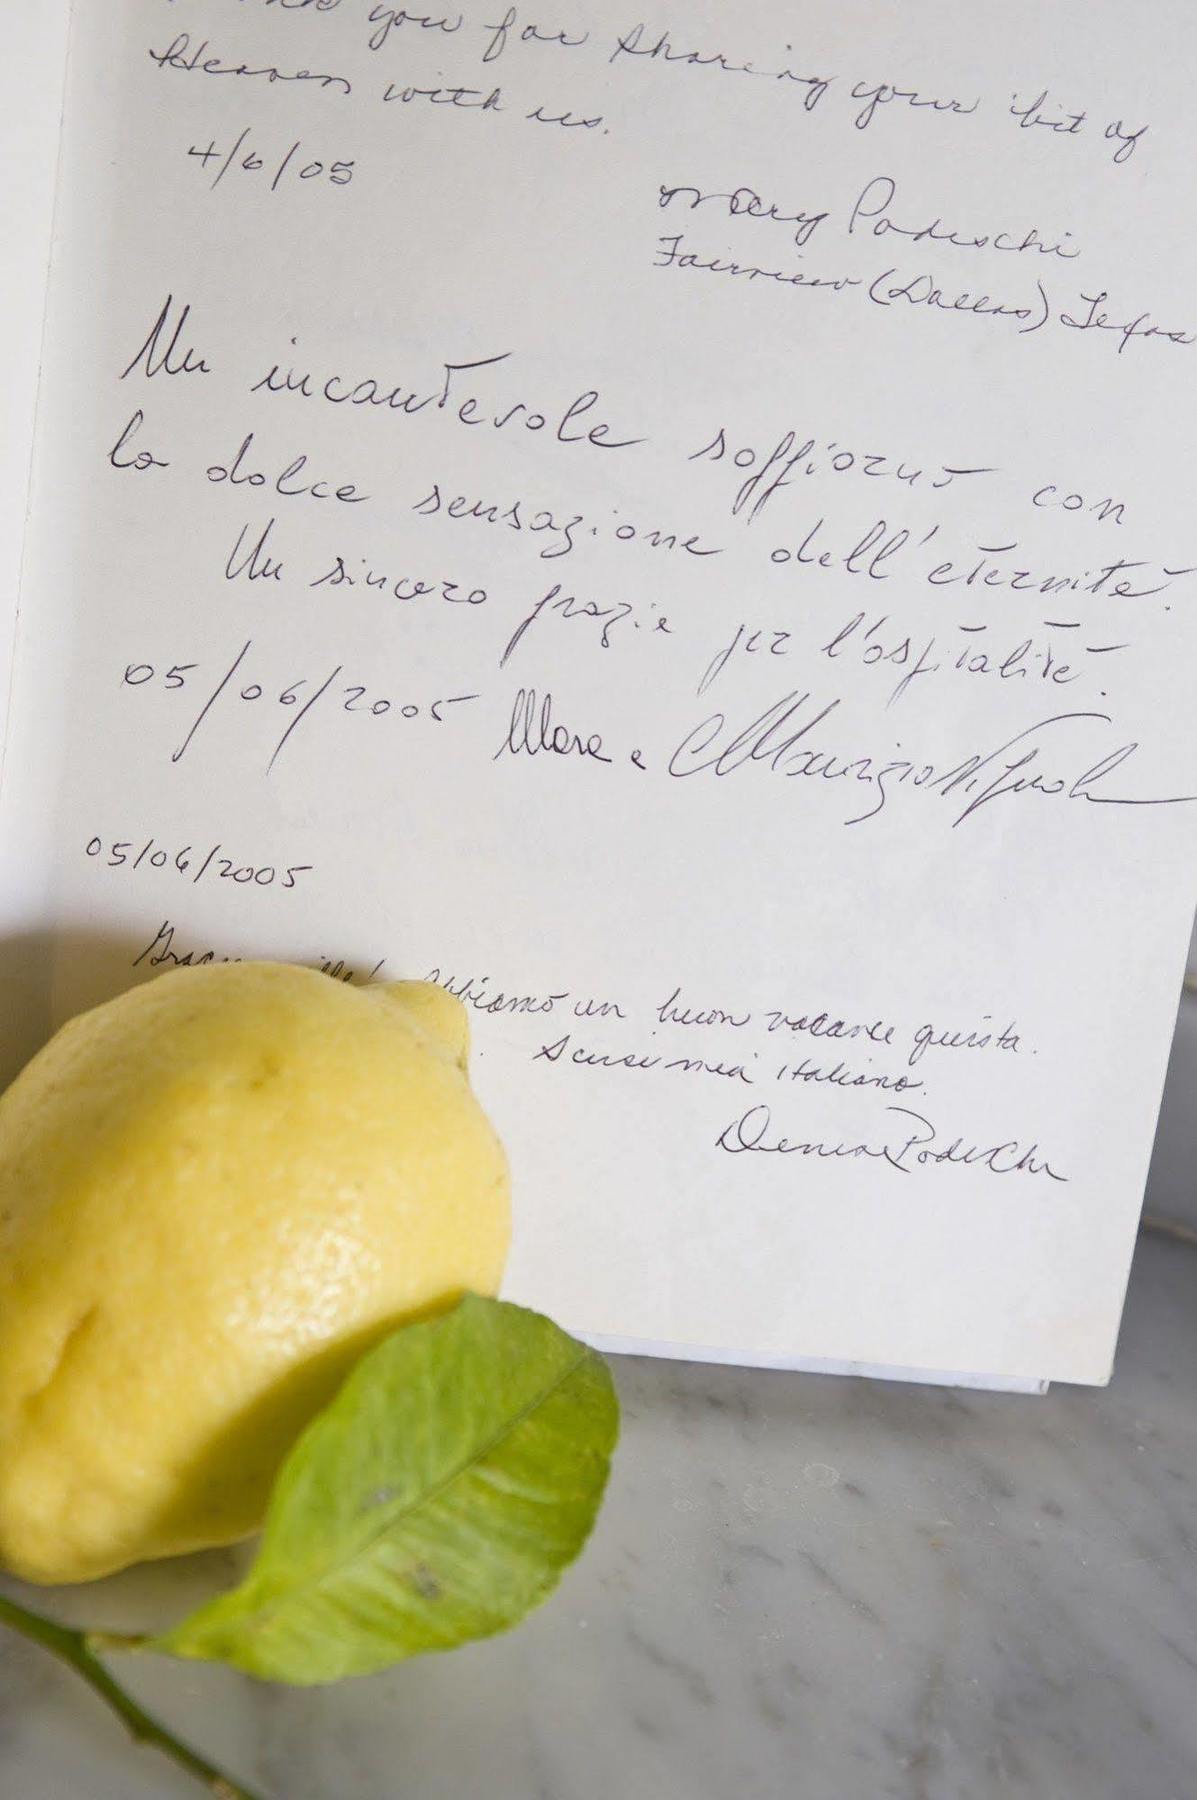 you for sharing your bit of
Heaven with us.
4/6/05
Mary Podeschi
Fairview (Dallas) Texas
Un incantevole soffiorno con
la dolce sensazione dell'eternità.
Un sincero grazie per l'ospitalità.
05/06/2005 Mara e Maurizio
05/06/2005
Abbiamo un buon vacance questa.
Scusi mea italiano.
Podeschi